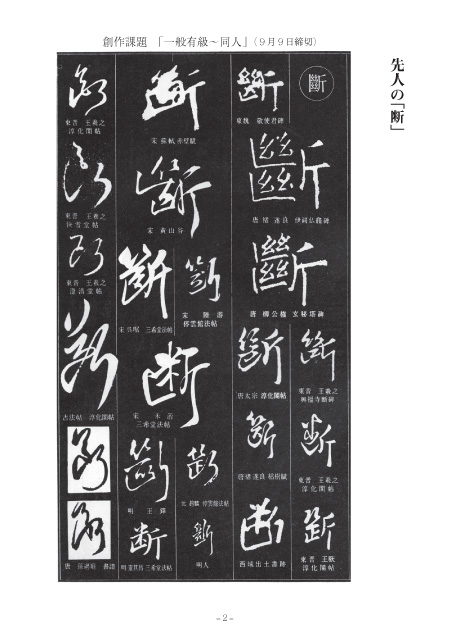 創作課題 「一般有級～同人」(９月９日締切)
先人の「断」
斷
東魏 敬使君碑
唐 褚遂良 伊闕仏龕碑
唐 柳公権 玄秘塔碑
東晋 王羲之
興福寺断碑
唐太宗 淳化閣帖
東晋 王羲之
淳化閣帖
唐 褚遂良 枯樹賦
東晋 王
淳化閣帖
西域出土墨跡
宋 蘇軾 赤壁賦
宋 黄山谷
宋 陸游
停雲館法帖
宋 呉琚 三希堂法帖
宋 米芾
三希堂法帖
停雲館法帖
明 王鐸
明人
明 董其昌 三希堂法帖
東晋 王羲之
淳化閣帖
東晋 王羲之
快雪堂帖
東晋 王羲之
澄清堂帖
古法帖 淳化閣帖
唐 孫過庭 書譜
－2－